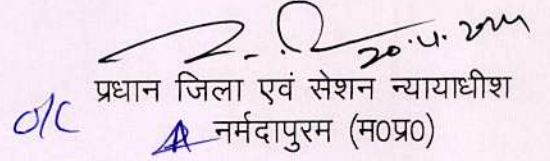 20.4.2024
प्रधान जिला एवं सेशन न्यायाधीश
O/C
नर्मदापुरम (म0प्र0)